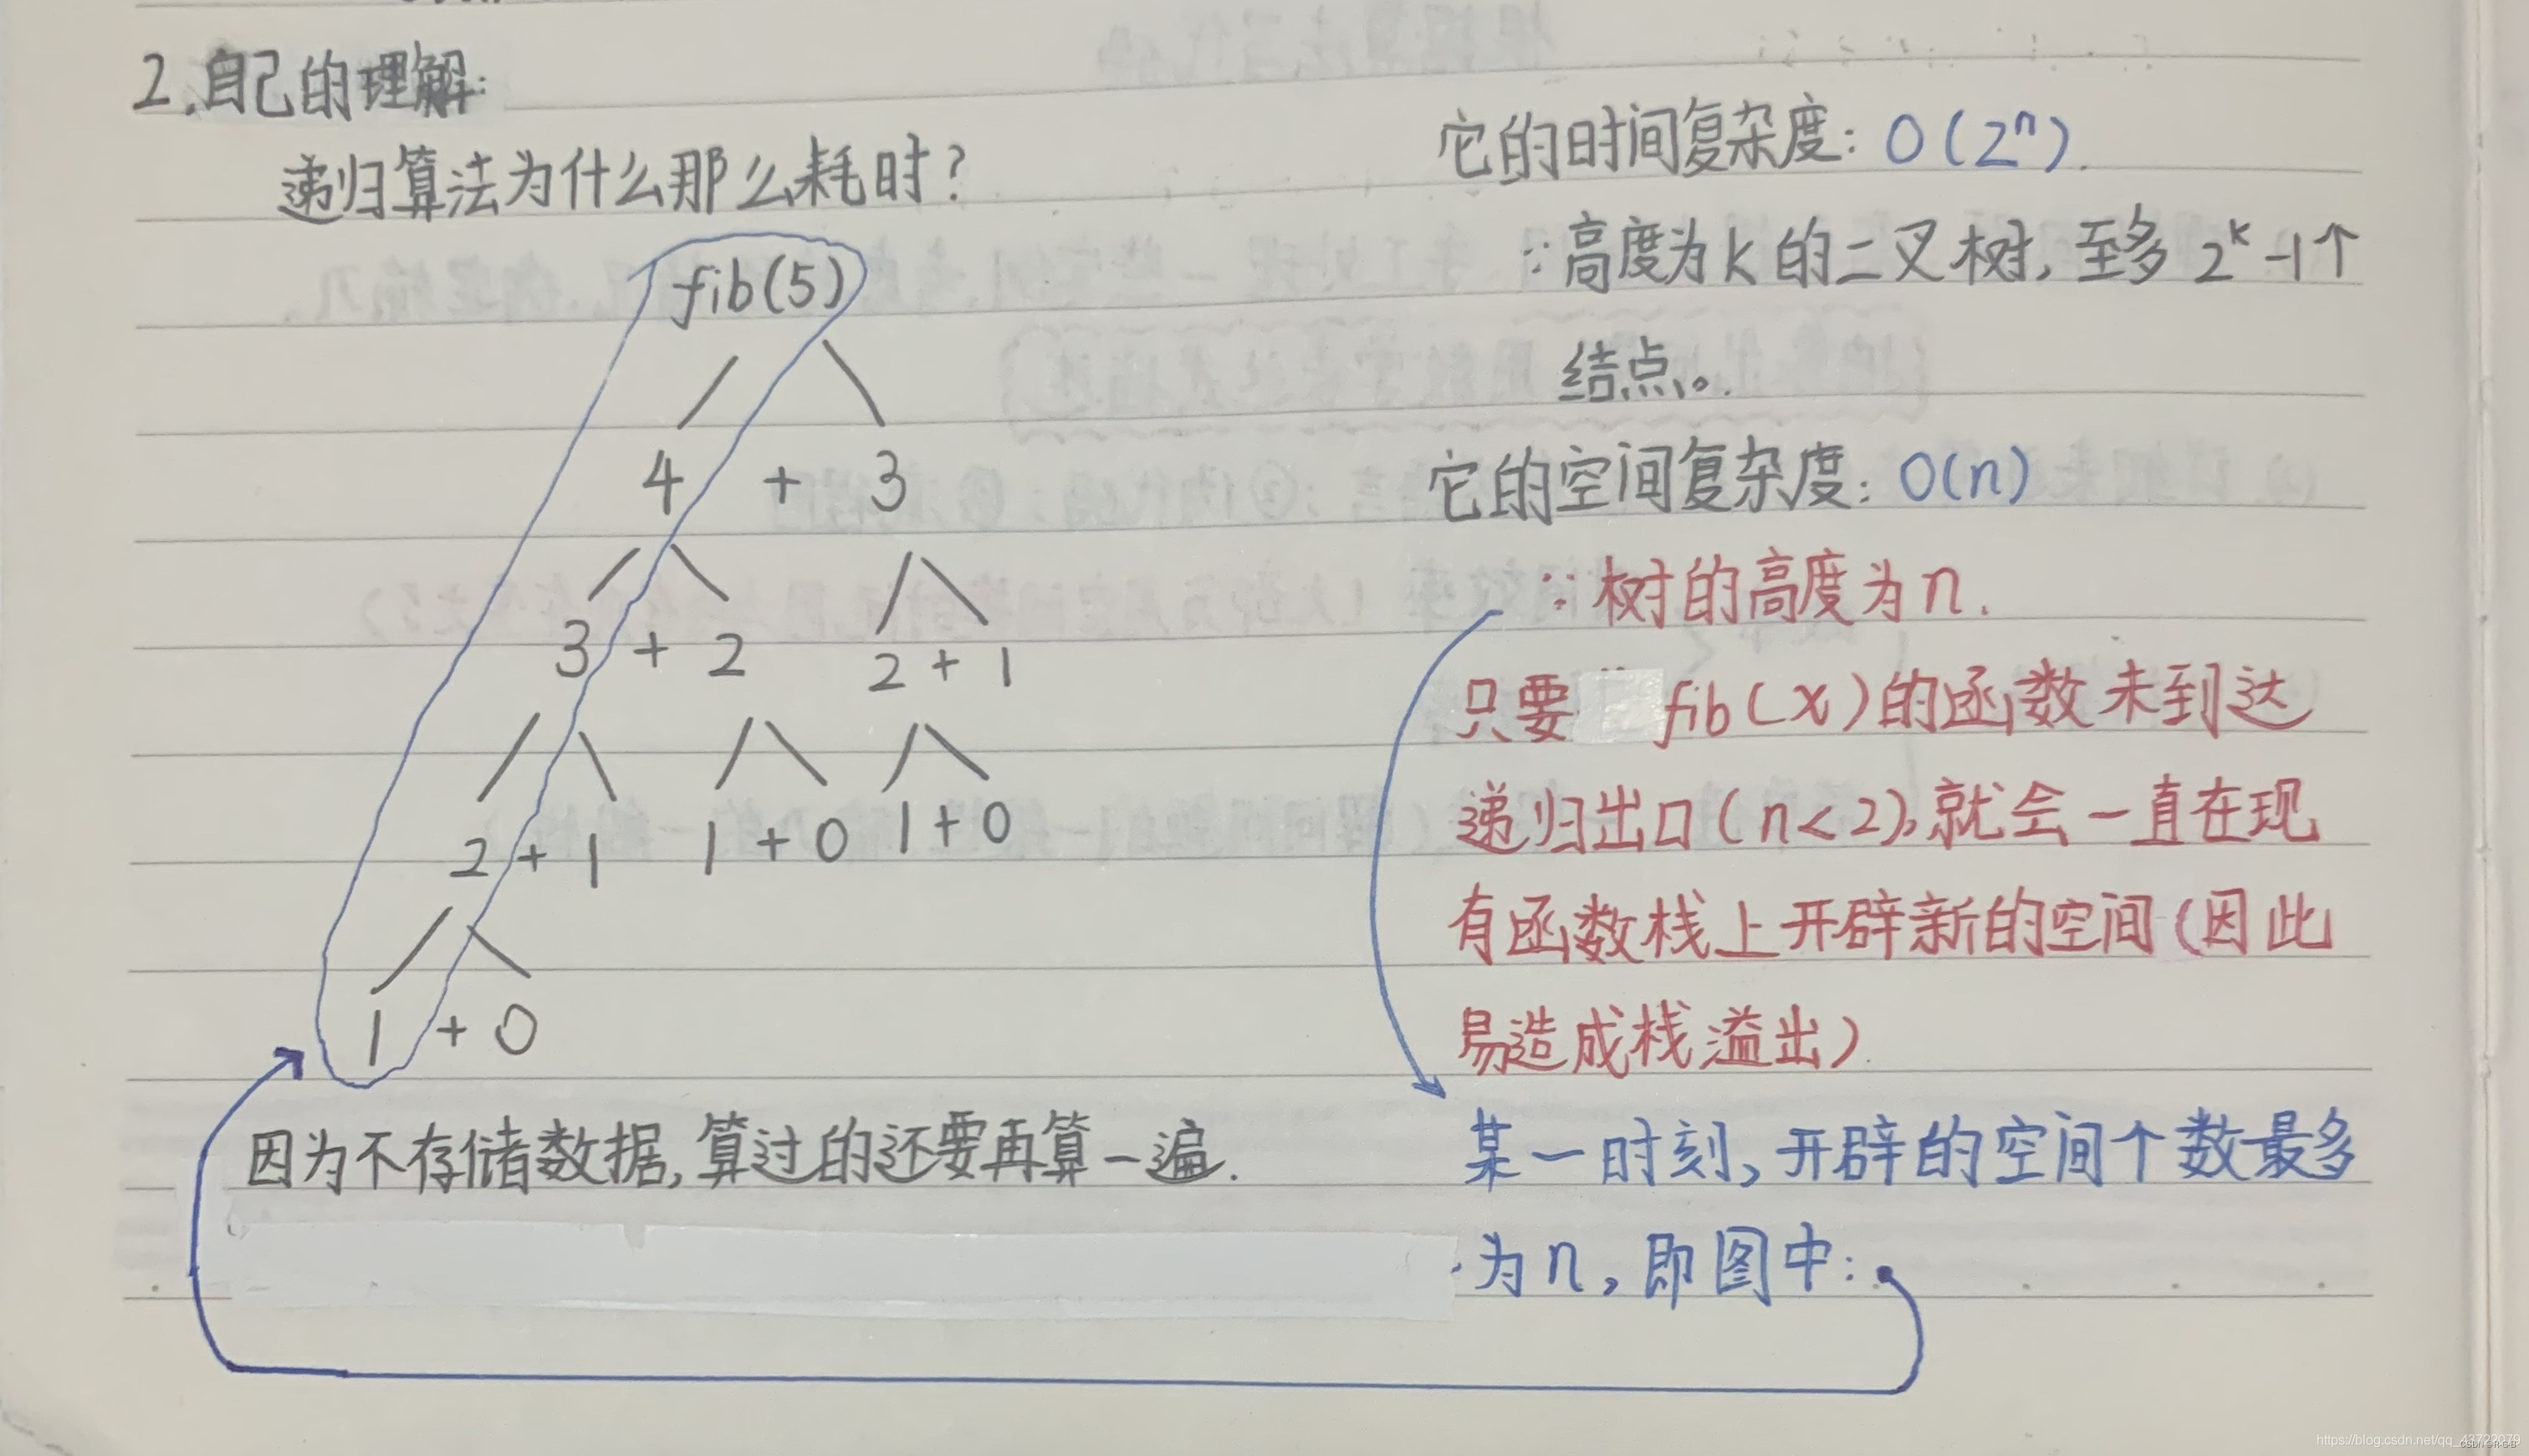 2.自己的理解:
递归算法为什么那么耗时?
fib(5)
4 + 3
3 + 2 2 + 1
2 + 1 1 + 0 1 + 0
1 + 0
因为不存储数据,算过的还要再算一遍.
它的时间复杂度: O(2ⁿ).
∵高度为k的二叉树,至多2ᵏ-1个
结点。
它的空间复杂度: O(n)
∵树的高度为n.
只要 fib(x)的函数未到达
递归出口(n<2),就会一直在现
有函数栈上开辟新的空间(因此
易造成栈溢出)
某一时刻,开辟的空间个数最多
为n,即图中: